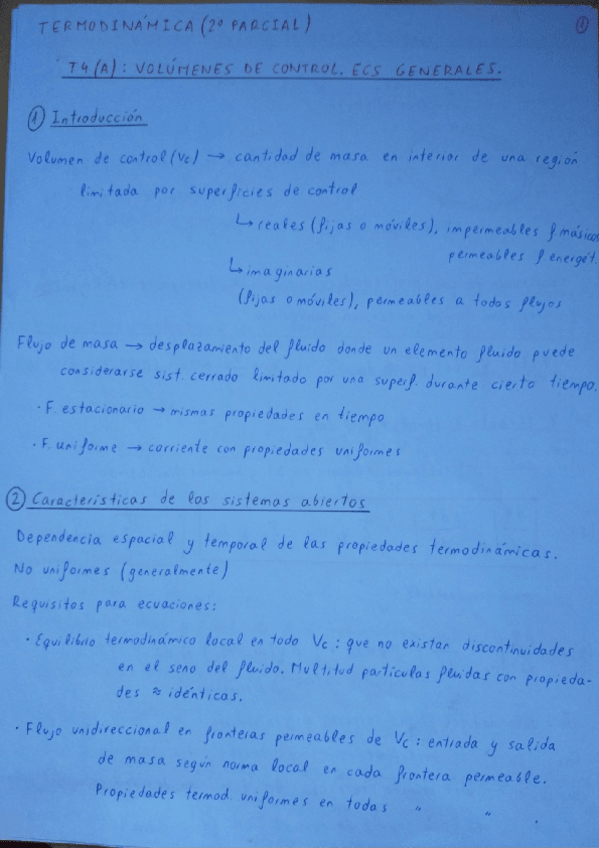 TERMODINÁMICA (2º PARCIAL)
1
T4(A): VOLÚMENES DE CONTROL. ECS GENERALES.
① Introducción
Volumen de control (Vc) → cantidad de masa en interior de una región
limitada por superficies de control
↳ reales (fijas o móviles), impermeables f másicos
permeables f energét.
↳ imaginarias
(fijas o móviles), permeables a todos flujos
Flujo de masa → desplazamiento del fluido donde un elemento fluido puede
considerarse sist. cerrado limitado por una superf. durante cierto tiempo.
· F. estacionario → mismas propiedades en tiempo
· F. uniforme → corriente con propiedades uniformes
② Características de los sistemas abiertos
Dependencia espacial y temporal de las propiedades termodinámicas.
No uniformes (generalmente)
Requisitos para ecuaciones:
· Equilibrio termodinámico local en todo Vc: que no existan discontinuidades
en el seno del fluido. Multitud partículas fluidas con propieda-
des ≈ idénticas.
· Flujo unidireccional en fronteras permeables de Vc: entrada y salida
de masa según norma local en cada frontera permeable.
Propiedades termod. uniformes en todas " " .